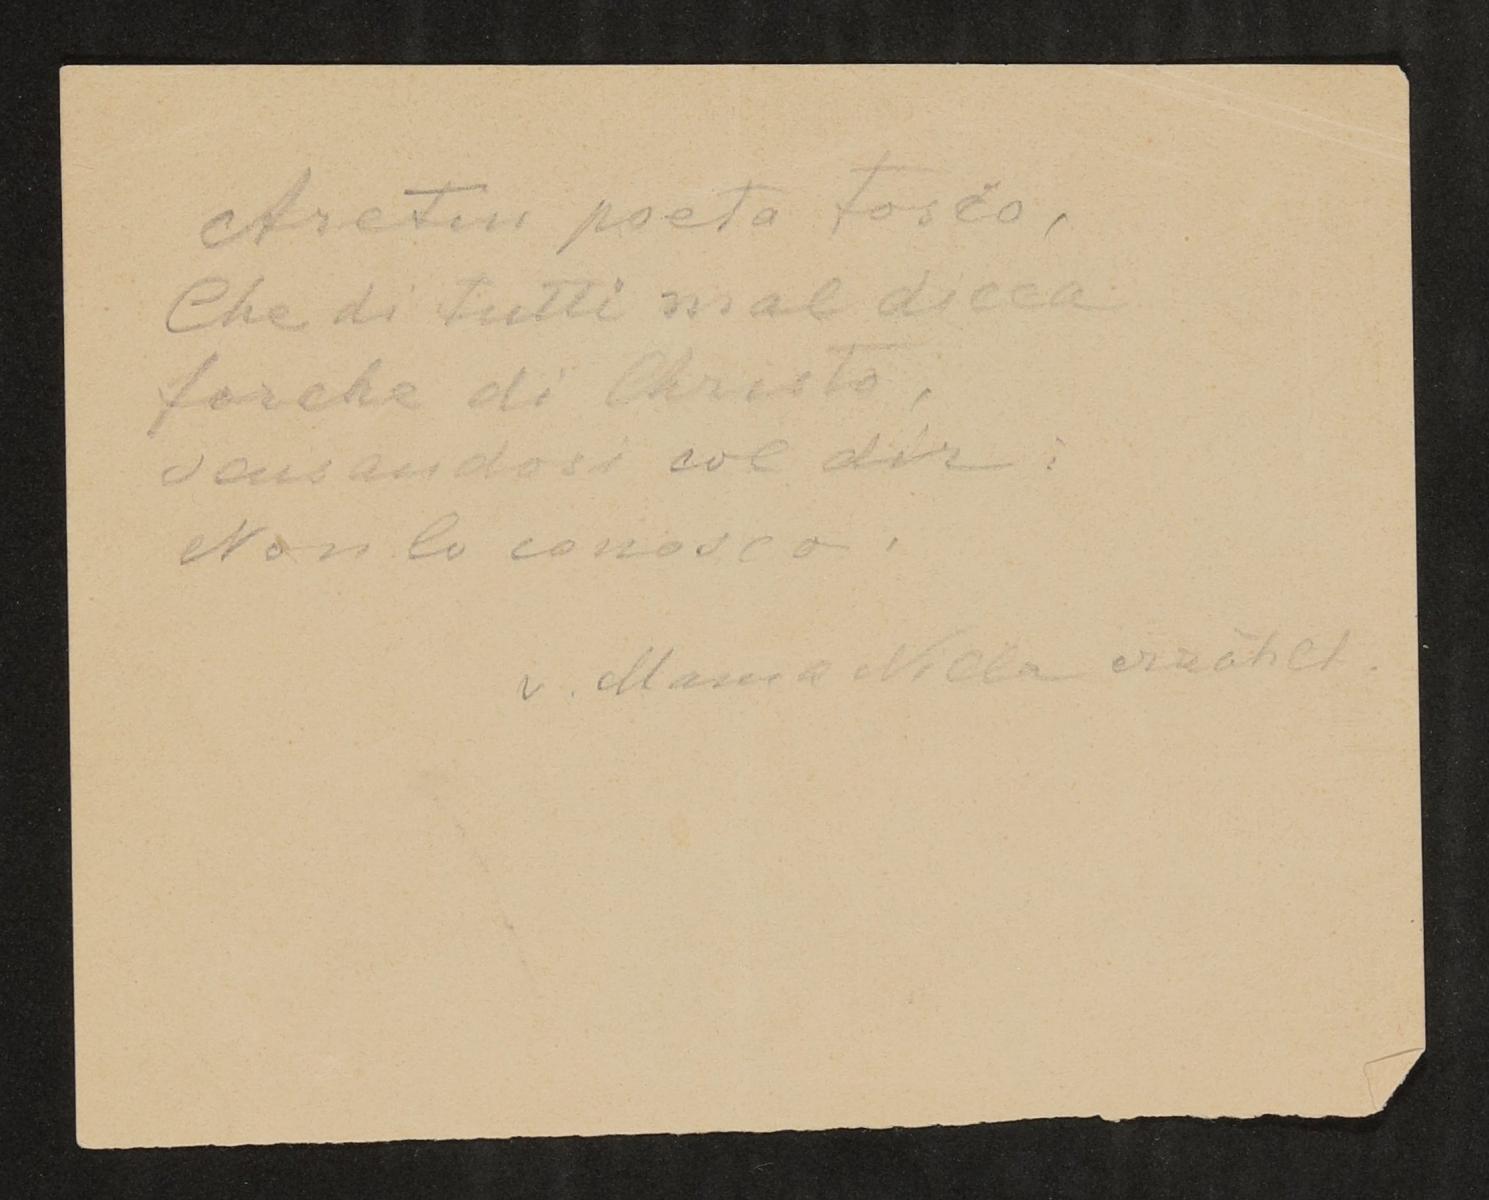 Aretin poeta Tosco,
Che di tutti mal dicea
forche di Christo,
scusandosi col dir :
Non lo conosco.
v. Mama Nilla erzählt.